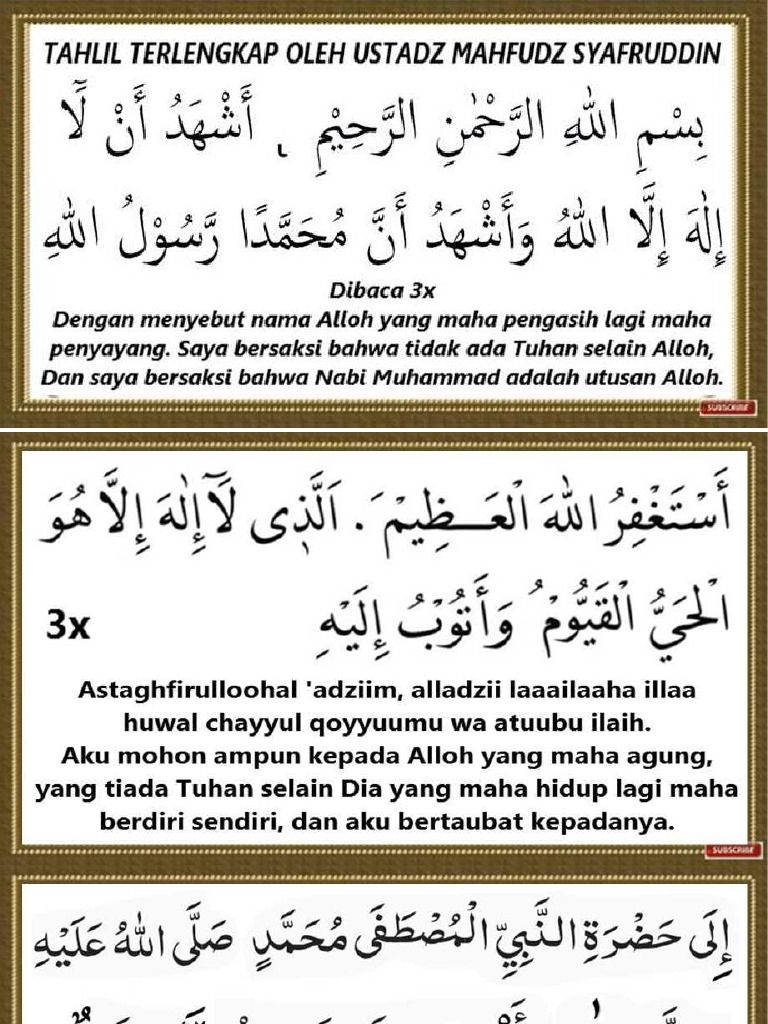 TAHLIL TERLENGKAP OLEH USTADZ MAHFUDZ SYAFRUDDIN
بِسْمِ اللهِ الرَّحْمٰنِ الرَّحِيْمِ . أَشْهَدُ أَنْ لَّا
إِلٰهَ إِلَّا اللهُ وَأَشْهَدُ أَنَّ مُحَمَّدًا رَّسُوْلُ اللهِ
Dibaca 3x
Dengan menyebut nama Alloh yang maha pengasih lagi maha
penyayang. Saya bersaksi bahwa tidak ada Tuhan selain Alloh,
Dan saya bersaksi bahwa Nabi Muhammad adalah utusan Alloh.
SUBSCRIBE
أَسْتَغْفِرُ اللهَ الْعَـــظِيْمَ . اَلَّذِى لَآ إِلٰهَ إِلَّا هُوَ
الْحَيُّ الْقَيُّوْمُ وَأَتُوْبُ إِلَيْهِ 3x
Astaghfirulloohal 'adziim, alladzii laaailaaha illaa
huwal chayyul qoyyuumu wa atuubu ilaih.
Aku mohon ampun kepada Alloh yang maha agung,
yang tiada Tuhan selain Dia yang maha hidup lagi maha
berdiri sendiri, dan aku bertaubat kepadanya.
SUBSCRIBE
إِلَى حَضْرَةِ النَّبِيِّ الْمُصْطَفَى مُحَمَّدٍ صَلَّى اللهُ عَلَيْهِ